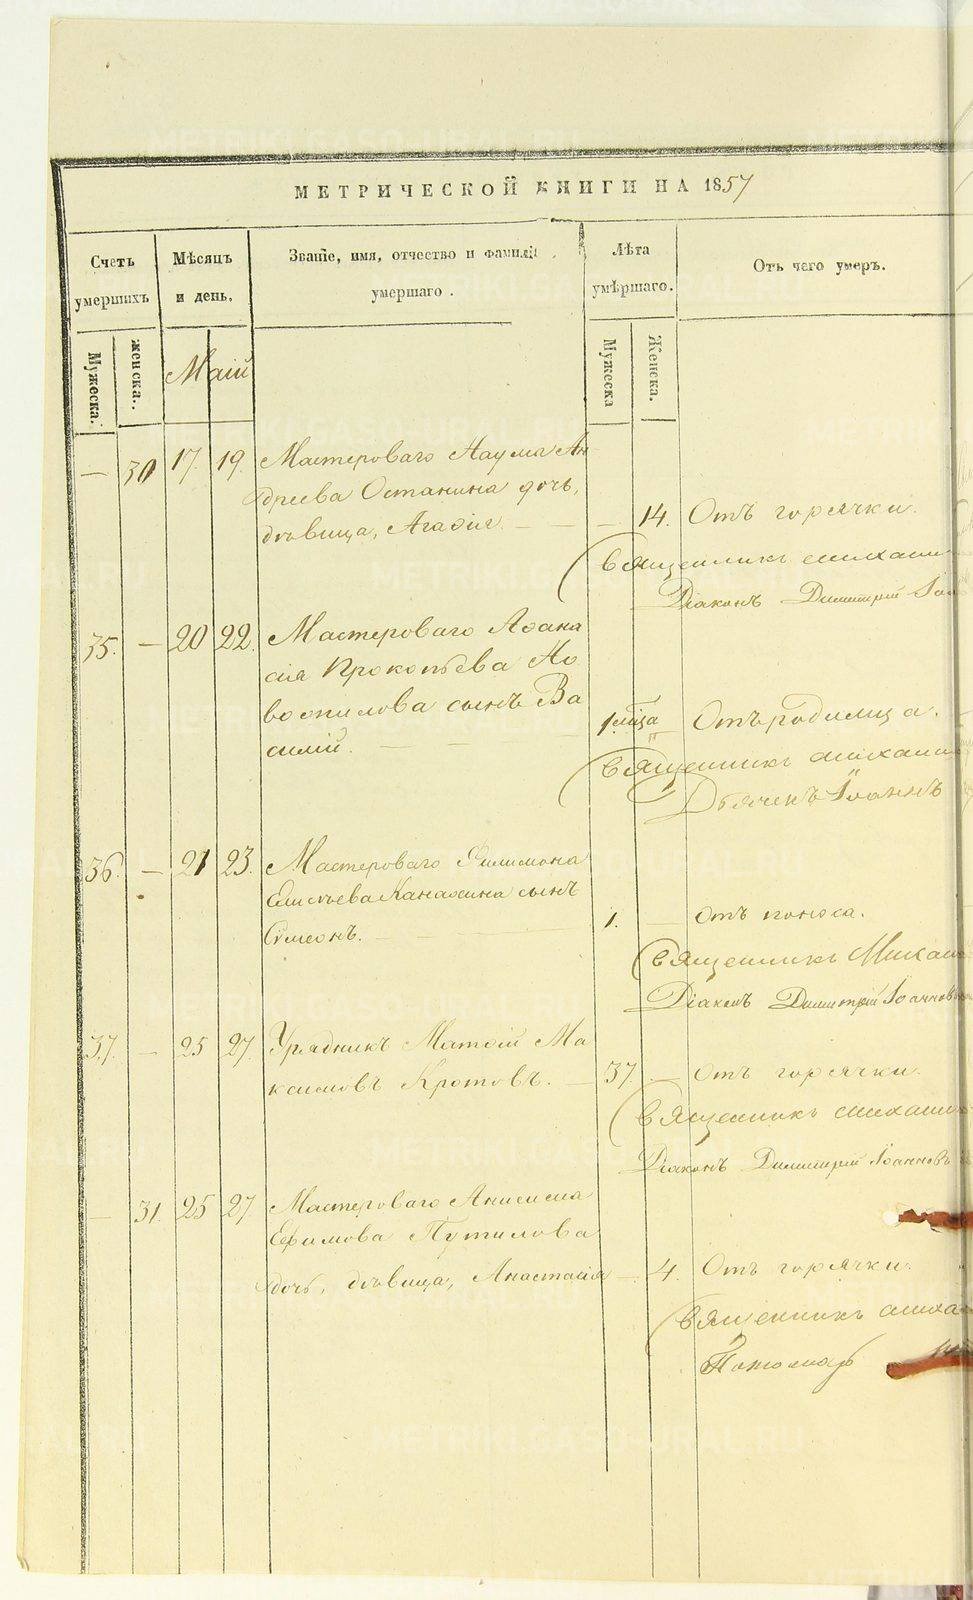 МЕТРИЧЕСКОЙ КНИГИ НА 1857
Счетъ умершихъ
Мѣсяцъ и день.
Званіе, имя, отчество и фамилія умершаго.
Лѣта умершаго.
Отъ чего умеръ.
Мужеска.
женска.
Маій
Мужеска
Женска.
— 30 17. 19. Мастероваго Наума Ан
дреева Останина дочь,
дѣвица, Агафія. — — — 14. Отъ горячки.
Священникъ Михаи
Діаконъ Димитрій Іоа
35. — 20 22. Мастероваго Афана
сія Прокопьева Но
воспилова сынъ Ва
силій. — — 1 мѣся. Отъ родимца.
Священникъ Михаи
Дьячекъ Іоаннъ
36. — 21 23. Мастероваго Филимона
Елисѣева Канахина сынъ
Сѵмеонъ. — 1. — Отъ поноса.
Священникъ Михаи
Діаконъ Димитрій Іоанновъ
37. — 25 27 Урядникъ Матѳій Ма
ксимовъ Кротовъ. — 37. — Отъ горячки.
Священникъ Михаи
Діаконъ Димитрій Іоанновъ
— 31. 25 27 Мастероваго Анисима
Ефимова Путилова
дочь, дѣвица, Анастасія — 4. Отъ горячки.
Священникъ Миха
Пономарь
METRIKI.GASO-URAL.RU